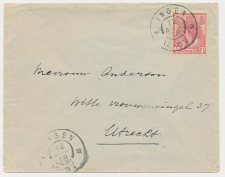 INGEN
Mevrouw Anderson
Witte vrouwensingel 37
Utrecht
INGEN